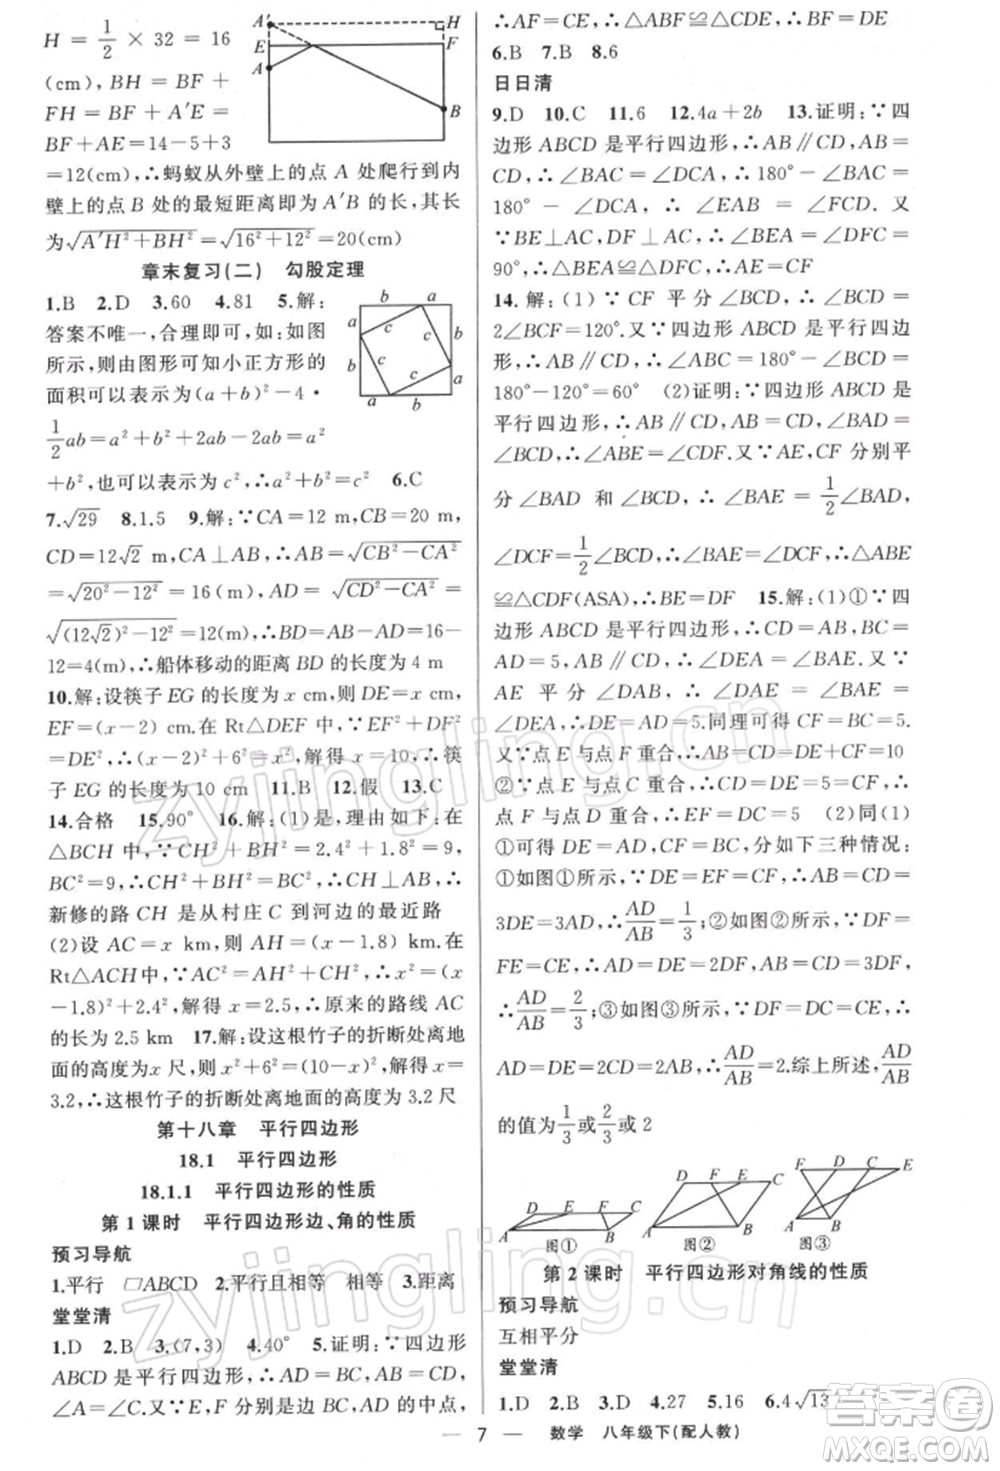 H = 1/2 × 32 = 16
(cm), BH = BF +
FH = BF + A′E =
BF + AE = 14 - 5 + 3
= 12(cm), ∴蚂蚁从外壁上的点 A 处爬行到内
壁上的点 B 处的最短距离即为 A′B 的长,其长
为√(A′H²+BH²) = √(16²+12²) = 20(cm)
A′ H E F A B
章末复习(二) 勾股定理
1.B 2.D 3.60 4.81 5.解:
答案不唯一,合理即可,如:如图
所示,则由图形可知小正方形的
面积可以表示为(a+b)²-4·
1/2ab=a²+b²+2ab-2ab=a²
+b²,也可以表示为c²,∴a²+b²=c² 6.C
b a a c c b b c c a a b
7.√29 8.1.5 9.解:∵CA=12 m,CB=20 m,
CD=12√2 m,CA⊥AB,∴AB=√(CB²-CA²)
=√(20²-12²)=16(m),AD=√(CD²-CA²)=
√((12√2)²-12²)=12(m),∴BD=AB-AD=16-
12=4(m),∴船体移动的距离 BD 的长度为 4 m
10.解:设筷子 EG 的长度为 x cm,则 DE=x cm,
EF=(x-2) cm.在 Rt△DEF 中,∵EF²+DF²=
DE²,∴(x-2)²+6²=x²,解得 x=10,∴筷
子 EG 的长度为 10 cm 11.B 12.假 13.C
14.合格 15.90° 16.解:(1)是,理由如下:在
△BCH 中,∵CH²+BH²=2.4²+1.8²=9,
BC²=9,∴CH²+BH²=BC²,∴CH⊥AB,∴
新修的路 CH 是从村庄 C 到河边的最近路
(2)设 AC=x km,则 AH=(x-1.8) km.在
Rt△ACH 中,∵AC²=AH²+CH²,∴x²=(x
-1.8)²+2.4²,解得 x=2.5,∴原来的路线 AC
的长为 2.5 km 17.解:设这根竹子的折断处离地
面的高度为 x 尺,则 x²+6²=(10-x)²,解得 x=
3.2,∴这根竹子的折断处离地面的高度为 3.2 尺
第十八章 平行四边形
18.1 平行四边形
18.1.1 平行四边形的性质
第 1 课时 平行四边形边、角的性质
预习导航
1.平行 ▱ABCD 2.平行且相等 相等 3.距离
堂堂清
1.D 2.B 3.(7,3) 4.40° 5.证明:∵四边形
ABCD 是平行四边形,∴AD=BC,AB=CD,
∠A=∠C.∵E,F 分别是边 BC,AD 的中点,
∴AF=CE,∴△ABF≌△CDE,∴BF=DE
6.B 7.B 8.6
日日清
9.D 10.C 11.6 12.4a+2b 13.证明:∵四
边形 ABCD 是平行四边形,∴AB∥CD,AB=
CD,∴∠BAC=∠DCA,∴180°-∠BAC=
180°-∠DCA,∴∠EAB=∠FCD.又
∵BE⊥AC,DF⊥AC,∴∠BEA=∠DFC=
90°,∴△BEA≌△DFC,∴AE=CF
14.解:(1)∵CF 平分∠BCD,∴∠BCD=
2∠BCF=120°.又∵四边形 ABCD 是平行四边
形,∴AB∥CD,∴∠ABC=180°-∠BCD=
180°-120°=60° (2)证明:∵四边形 ABCD 是
平行四边形,∴AB∥CD,AB=CD,∠BAD=
∠BCD,∴∠ABE=∠CDF.又∵AE,CF 分别平
分∠BAD 和∠BCD,∴∠BAE=1/2∠BAD,
∠DCF=1/2∠BCD,∴∠BAE=∠DCF,∴△ABE
≌△CDF(ASA),∴BE=DF 15.解:(1)①∵四
边形 ABCD 是平行四边形,∴CD=AB,BC=
AD=5,AB∥CD,∴∠DEA=∠BAE.又∵
AE 平分∠DAB,∴∠DAE=∠BAE=
∠DEA,∴DE=AD=5.同理可得 CF=BC=5.
又∵点 E 与点 F 重合,∴AB=CD=DE+CF=10
②∵点 E 与点 C 重合,∴CD=DE=5.∵CF=5,∴
点 F 与点 D 重合,∴EF=DC=5 (2)同(1)
①可得 DE=AD,CF=CB.分如下三种情况:
①如图①所示,∵DE=EF=CF,∴AB=CD=
3DE=3AD,∴AD/AB=1/3;②如图②所示,∵DF=
FE=CE,∴DE=AD=2DF,AB=CD=3DF,
∴AD/AB=2/3;③如图③所示,∵DF=DC=CE,∴
AD=DE=2CD=2AB,∴AD/AB=2.综上所述,AD/AB
的值为1/3或2/3或 2
D E F C A B 图①
D F E C A B 图②
F D C E A B 图③
第 2 课时 平行四边形对角线的性质
预习导航
互相平分
堂堂清
1.D 2.B 3.D 4.27 5.16 6.4√13
— 7 — 数学 八年级下(配人教)
zyjingling.cn
zyjingling.cn
答案圈
MXQE.COM